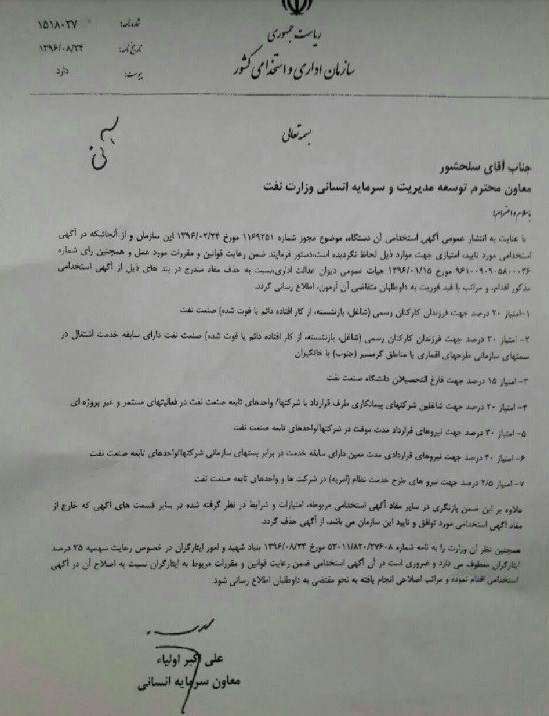 ریاست جمهوری
سازمان اداری و استخدامی کشور
شماره نامه: ۱۵۱۸۰۲۷
تاریخ نامه: ۱۳۹۶/۰۸/۲۴
پیوست: دارد
بسمه تعالی
جناب آقای سلحشور
معاون محترم توسعه مدیریت و سرمایه انسانی وزارت نفت
با سلام و احترام؛
با عنایت به انتشار عمومی آگهی استخدامی آن دستگاه، موضوع مجوز شماره ۱۱۶۹۲۵۱ مورخ ۱۳۹۶/۰۲/۲۴ این سازمان و از آنجائیکه در آگهی
استخدامی مورد تایید، امتیازی جهت موارد ذیل لحاظ نگردیده است، دستور فرمایند ضمن رعایت قوانین و مقررات مورد عمل و همچنین رای شماره
۹۶۱۰۰۹۰۹۰۵۸۰۰۰۲۶ مورخ ۱۳۹۶/۰۱/۱۵ هیات عمومی دیوان عدالت اداری، نسبت به حذف مفاد مندرج در بند های ذیل از آگهی استخدامی
مذکور اقدام، و مراتب با قید فوریت به داوطلبان متقاضی آن آزمون، اطلاع رسانی گردد.
۱-امتیاز ۲۰ درصد جهت فرزندان کارکنان رسمی (شاغل، بازنشسته، از کار افتاده دائم یا فوت شده) صنعت نفت
۲- امتیاز ۳۰ درصد جهت فرزندان کارکنان رسمی (شاغل، بازنشسته، از کار افتاده دائم یا فوت شده) صنعت نفت دارای سابقه خدمت اشتغال در
سمتهای سازمانی طرحهای اقماری یا مناطق گرمسیر (جنوب) یا خانگیران
۳- امتیاز ۱۵ درصد جهت فارغ التحصیلان دانشگاه صنعت نفت
۴- امتیاز ۲۰ درصد جهت شاغلین شرکتهای پیمانکاری طرف قرارداد با شرکتها/ واحدهای تابعه صنعت نفت در فعالیتهای مستمر و غیر پروژه ای
۵- امتیاز ۳۰ درصد جهت نیروهای قرارداد مدت موقت در شرکتها/واحدهای تابعه صنعت نفت
۶- امتیاز ۴۰ درصد جهت نیروهای قراردادی مدت معین دارای سابقه خدمت در برابر پستهای سازمانی شرکتها/واحدهای تابعه صنعت نفت
۷- امتیاز ۲/۵ درصد جهت نیرو های طرح خدمت نظام (امریه) در شرکت ها و واحدهای تابعه صنعت نفت
علاوه بر این ضمن بازنگری در سایر مفاد آگهی استخدامی مربوطه، امتیازات و شرایط در نظر گرفته شده در سایر قسمت های آگهی که خارج از
مفاد آگهی استخدامی مورد توافق و تایید این سازمان می باشد، از آگهی حذف گردد.
همچنین نظر آن وزارت را به نامه شماره ۵۲۰۱۱/۸۲۰/۲۷۶۰۸ مورخ ۱۳۹۶/۰۸/۲۳ بنیاد شهید و امور ایثارگران در خصوص رعایت سهمیه ۲۵ درصد
ایثارگران معطوف می دارد و ضروری است در آن آگهی استخدامی ضمن رعایت قوانین و مقررات مربوط به ایثارگران نسبت به اصلاح آن در آگهی
استخدامی اقدام نموده و مراتب اصلاحی انجام یافته به نحو مقتضی به داوطلبان اطلاع رسانی شود.
علی اکبر اولیاء
معاون سرمایه انسانی